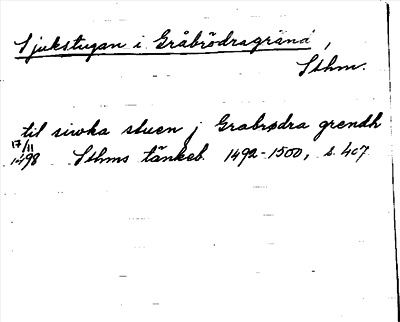 Sjukstugan i Gråbrödragränd,
Sthm.
til siwka stuen j Grabrødra grendh
17/11
1498 Sthms tänkeb. 1492-1500, s. 407